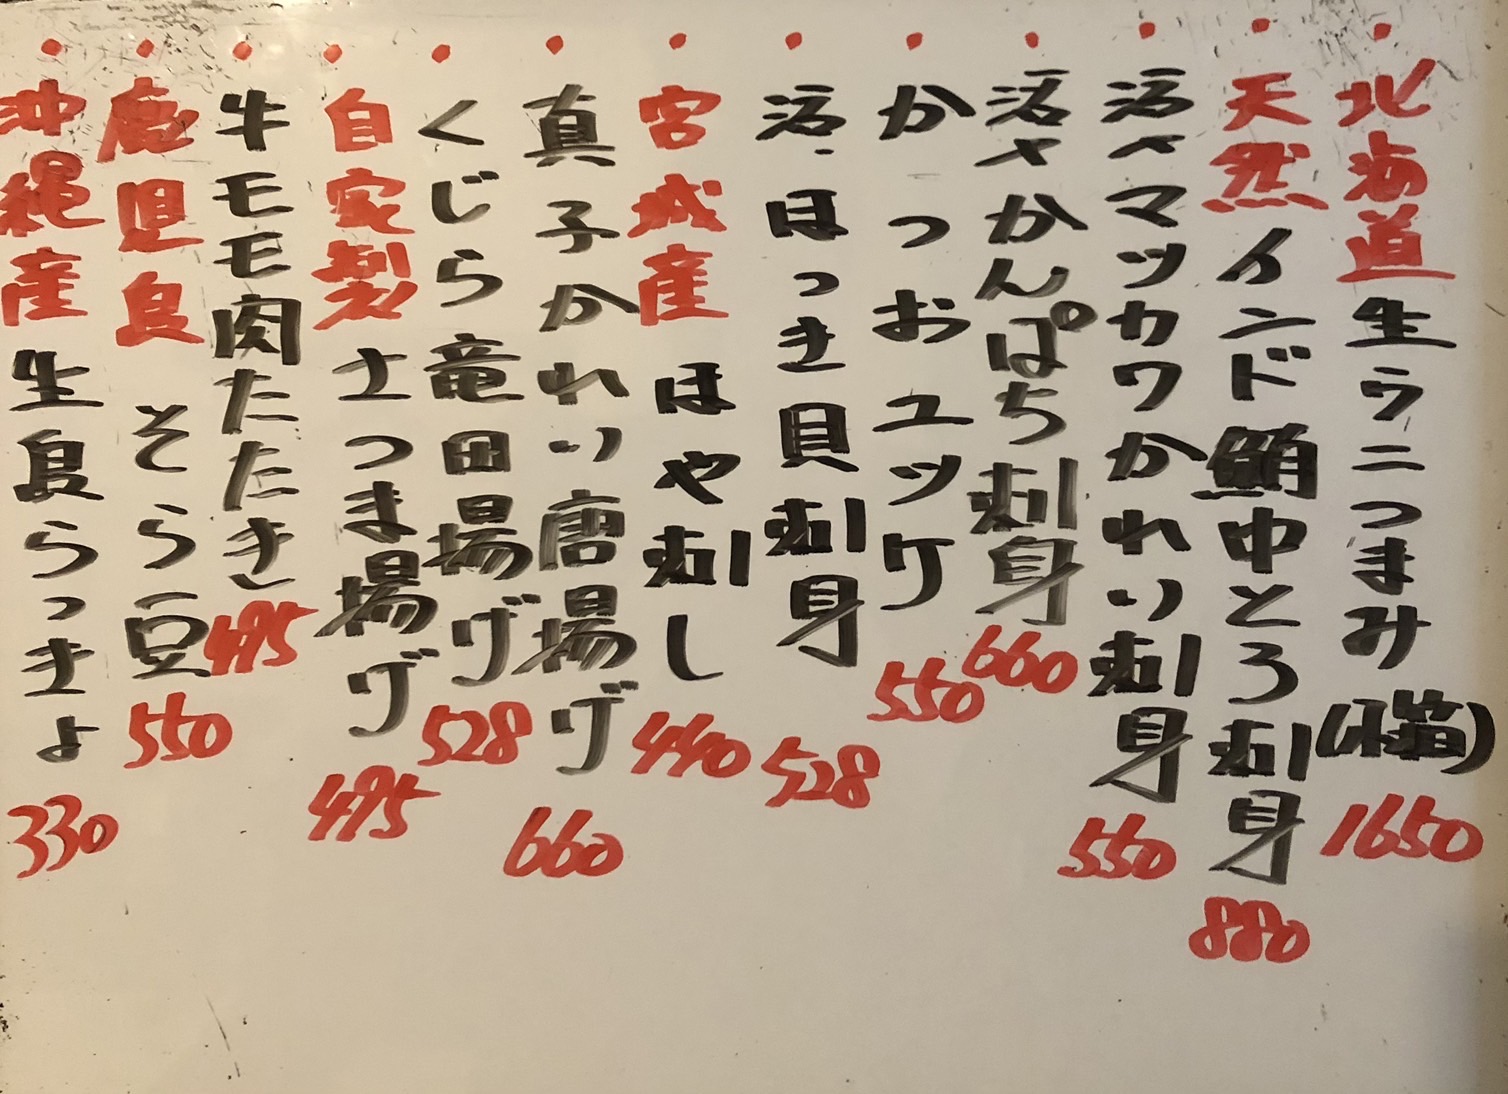 ・北海道生ウニつまみ(小箱)1650
・天然インド鮪中とろ刺身880
・活〆マツカワかれい刺身550
・活〆かんぱち刺身660
・かつおユッケ550
・活ほっき貝刺身528
・宮城産ほや刺し440
・真子かれい唐揚げ660
・くじら竜田揚げ528
・自家製さつま揚げ495
・牛モモ肉たたき495
・鹿児島そら豆550
・沖縄産生島らっきょ330